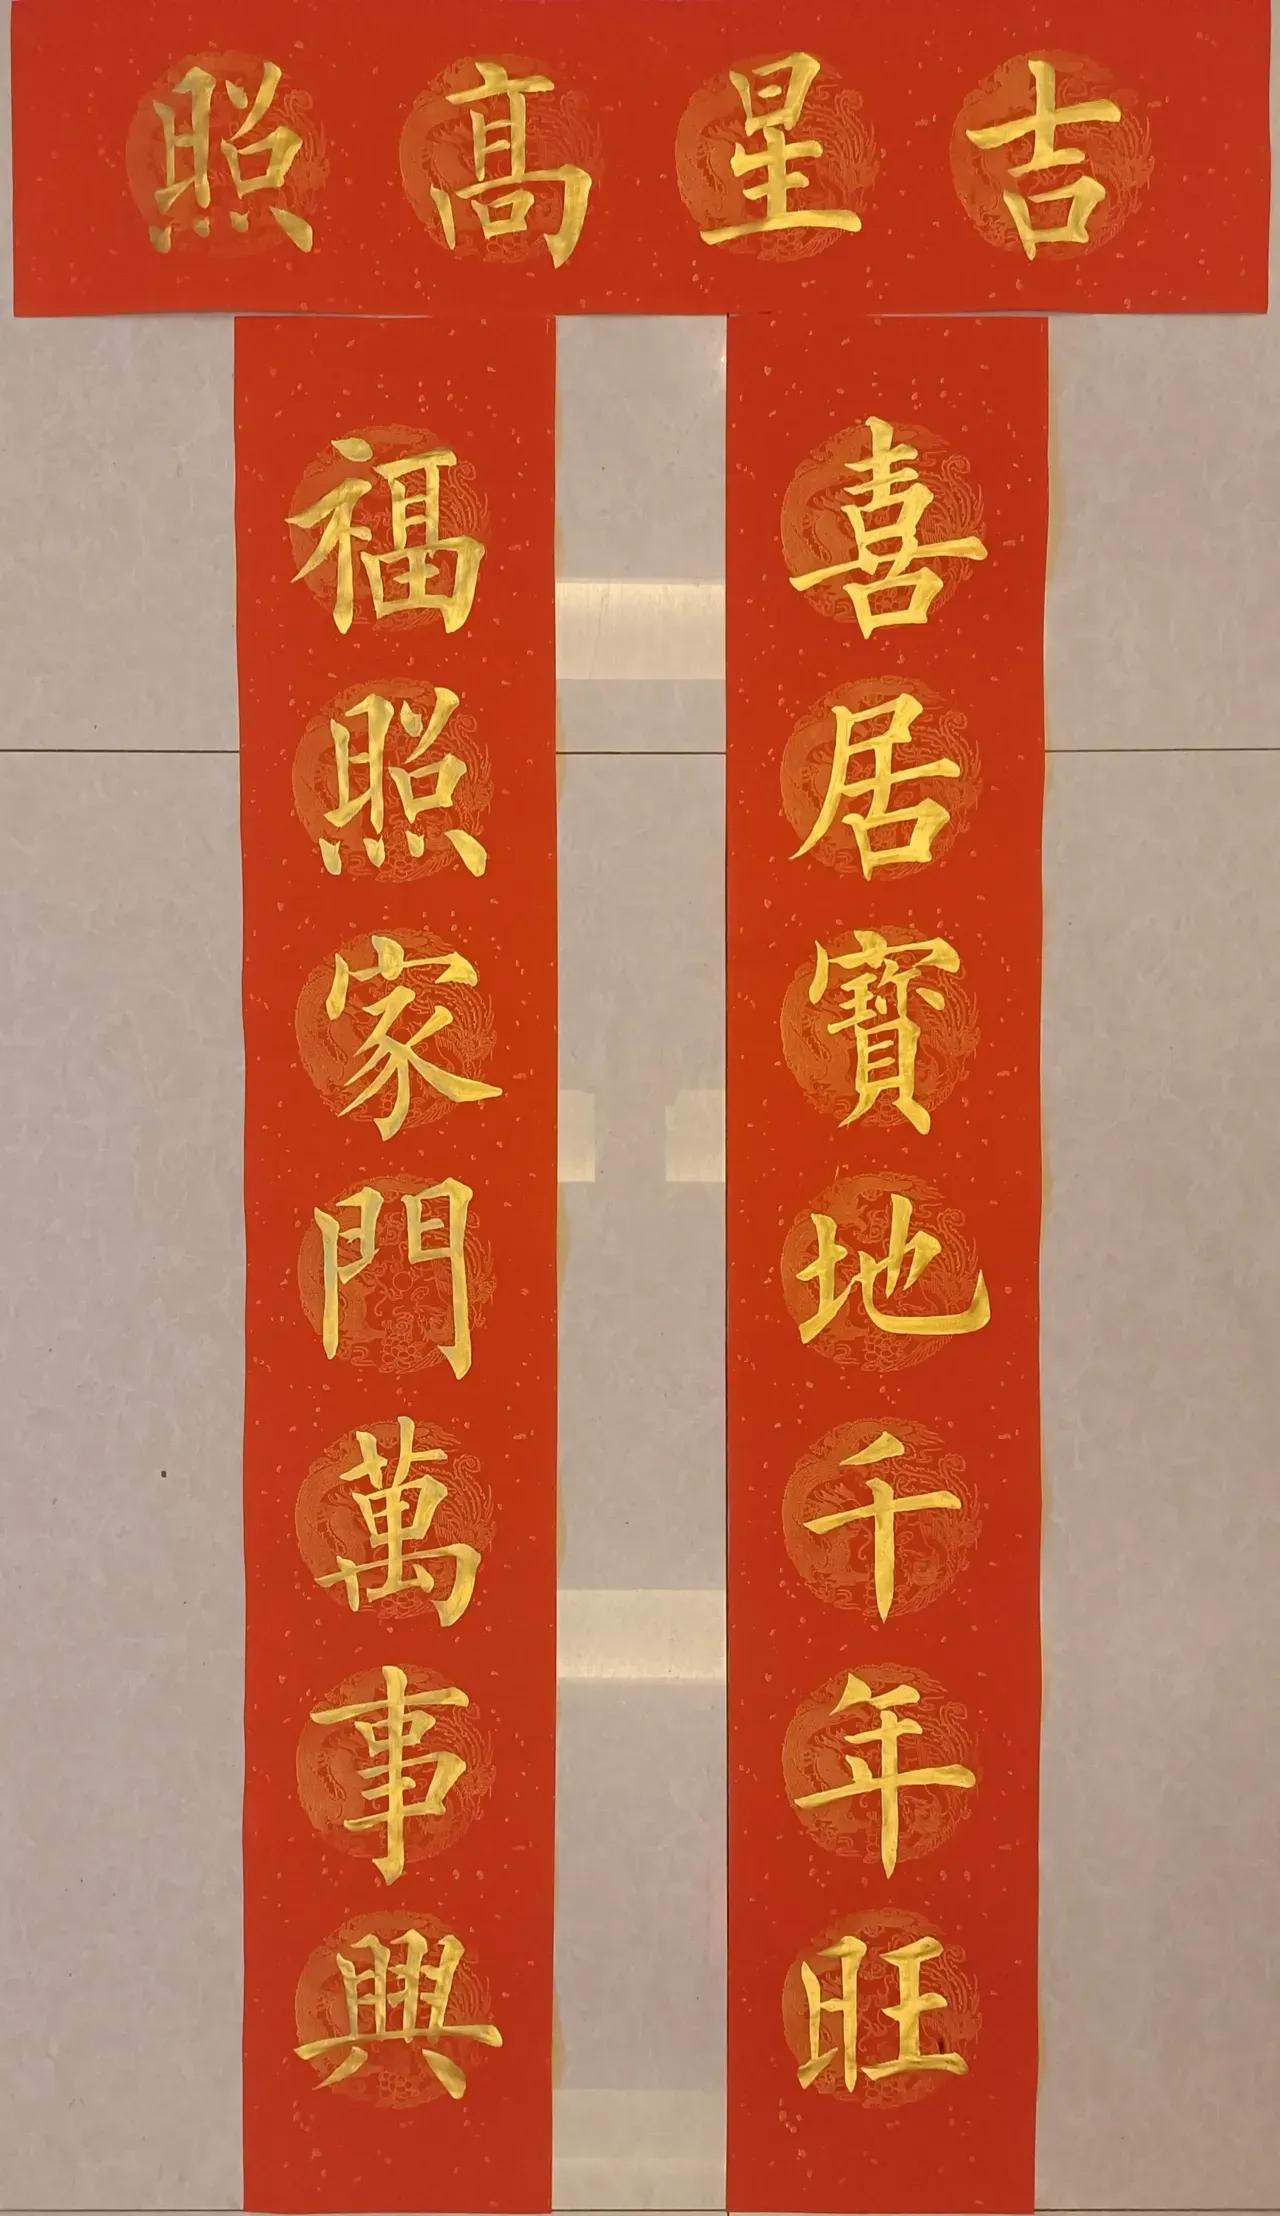 吉星高照
喜居寶地千年旺
福照家門萬事興